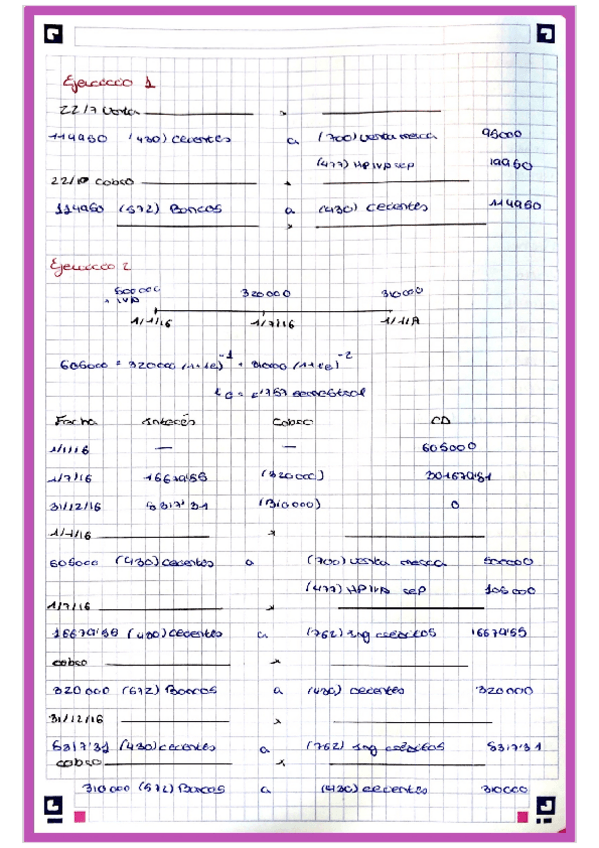 Ejercicio 1
22/7 Venta x
114950 (430) clientes a (700) venta merca 95000
(477) HP IVA rep 19950
22/10 cobro x
114950 (572) Bancos a (430) clientes 114950
x
Ejercicio 2
500000 320000 310000
+ IVA
1/1/16 1/7/16 1/1/17
605000 = 320000 (1+ie)⁻¹ + 310000 (1+ie)⁻²
ie = 2'757 semestral
Fecha Interés Cobro CA
1/1/16 — — 605000
1/7/16 16679'55 (320000) 301679'51
31/12/16 8317'31 (310000) 0
1/1/16 x
605000 (430) clientes a (700) venta merca 500000
(477) HP IVA rep 105000
1/7/16 x
16679'55 (430) clientes a (762) Ing créditos 16679'55
cobro x
320000 (572) Bancos a (430) clientes 320000
31/12/16 x
8317'31 (430) clientes a (762) Ing créditos 8317'31
cobro x
310000 (572) Bancos a (430) clientes 310000